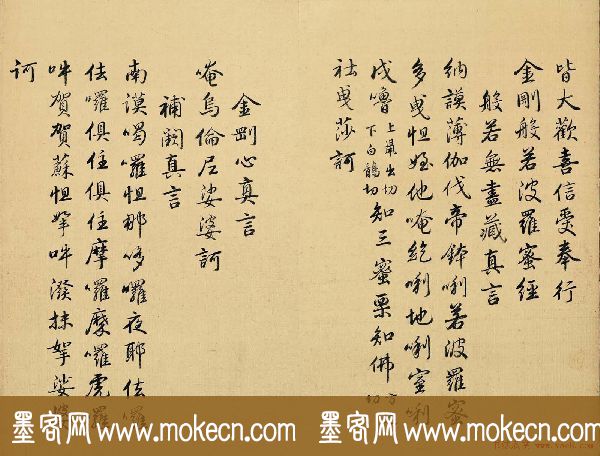 皆大歡喜信受奉行
金剛般若波羅蜜經
般若無盡藏真言
納謨薄伽伐帝鉢唎若波羅蜜
多曳怛姪他唵紇唎地唎室唎
戍嚕 上聲出切 下自鶻切 知三蜜栗知佛
社曳莎訶
金剛心真言
唵烏倫尼娑婆訶
補闕真言
南謨喝囉怛那哆囉夜耶佉囉
佉囉俱住俱住摩囉麼囉虎羅
吽賀賀蘇怛拏吽潑抹拏娑
訶
墨客网 www.mokecn.com 墨客网 www.mokecn.com